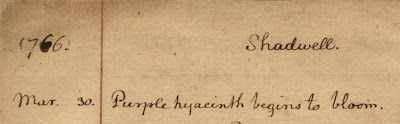 1766. Shadwell.
Mar. 30. Purple hyacinth begins to bloom.